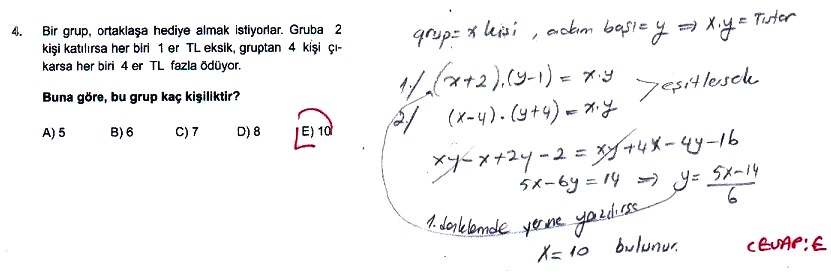 4. Bir grup, ortaklaşa hediye almak istiyorlar. Gruba 2
kişi katılırsa her biri 1 er TL eksik, gruptan 4 kişi çı-
karsa her biri 4 er TL fazla ödüyor.
Buna göre, bu grup kaç kişiliktir?
A) 5 B) 6 C) 7 D) 8 E) 10
grup= x kişi , adam başı= y ⇒ x.y = Tutar
1./ (x+2).(y-1) = x.y
2./ (x-4).(y+4) = x.y
eşitlersek
xy-x+2y-2 = xy+4x-4y-16
5x-6y=14 ⇒ y= 5x-14
6
1. denklemde yerine yazılırsa
x=10 bulunur.
CEVAP: E